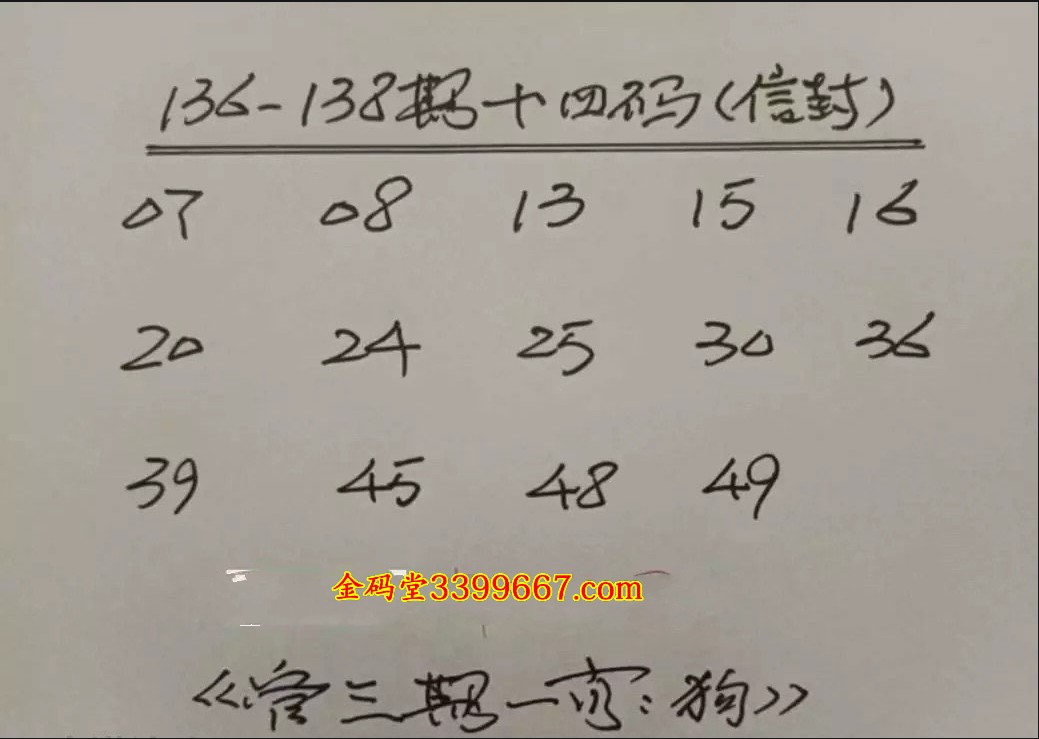 136-138期十四码(信封)
07 08 13 15 16
20 24 25 30 36
39 45 48 49
金码堂3399667.com
《管三期一肖:狗》